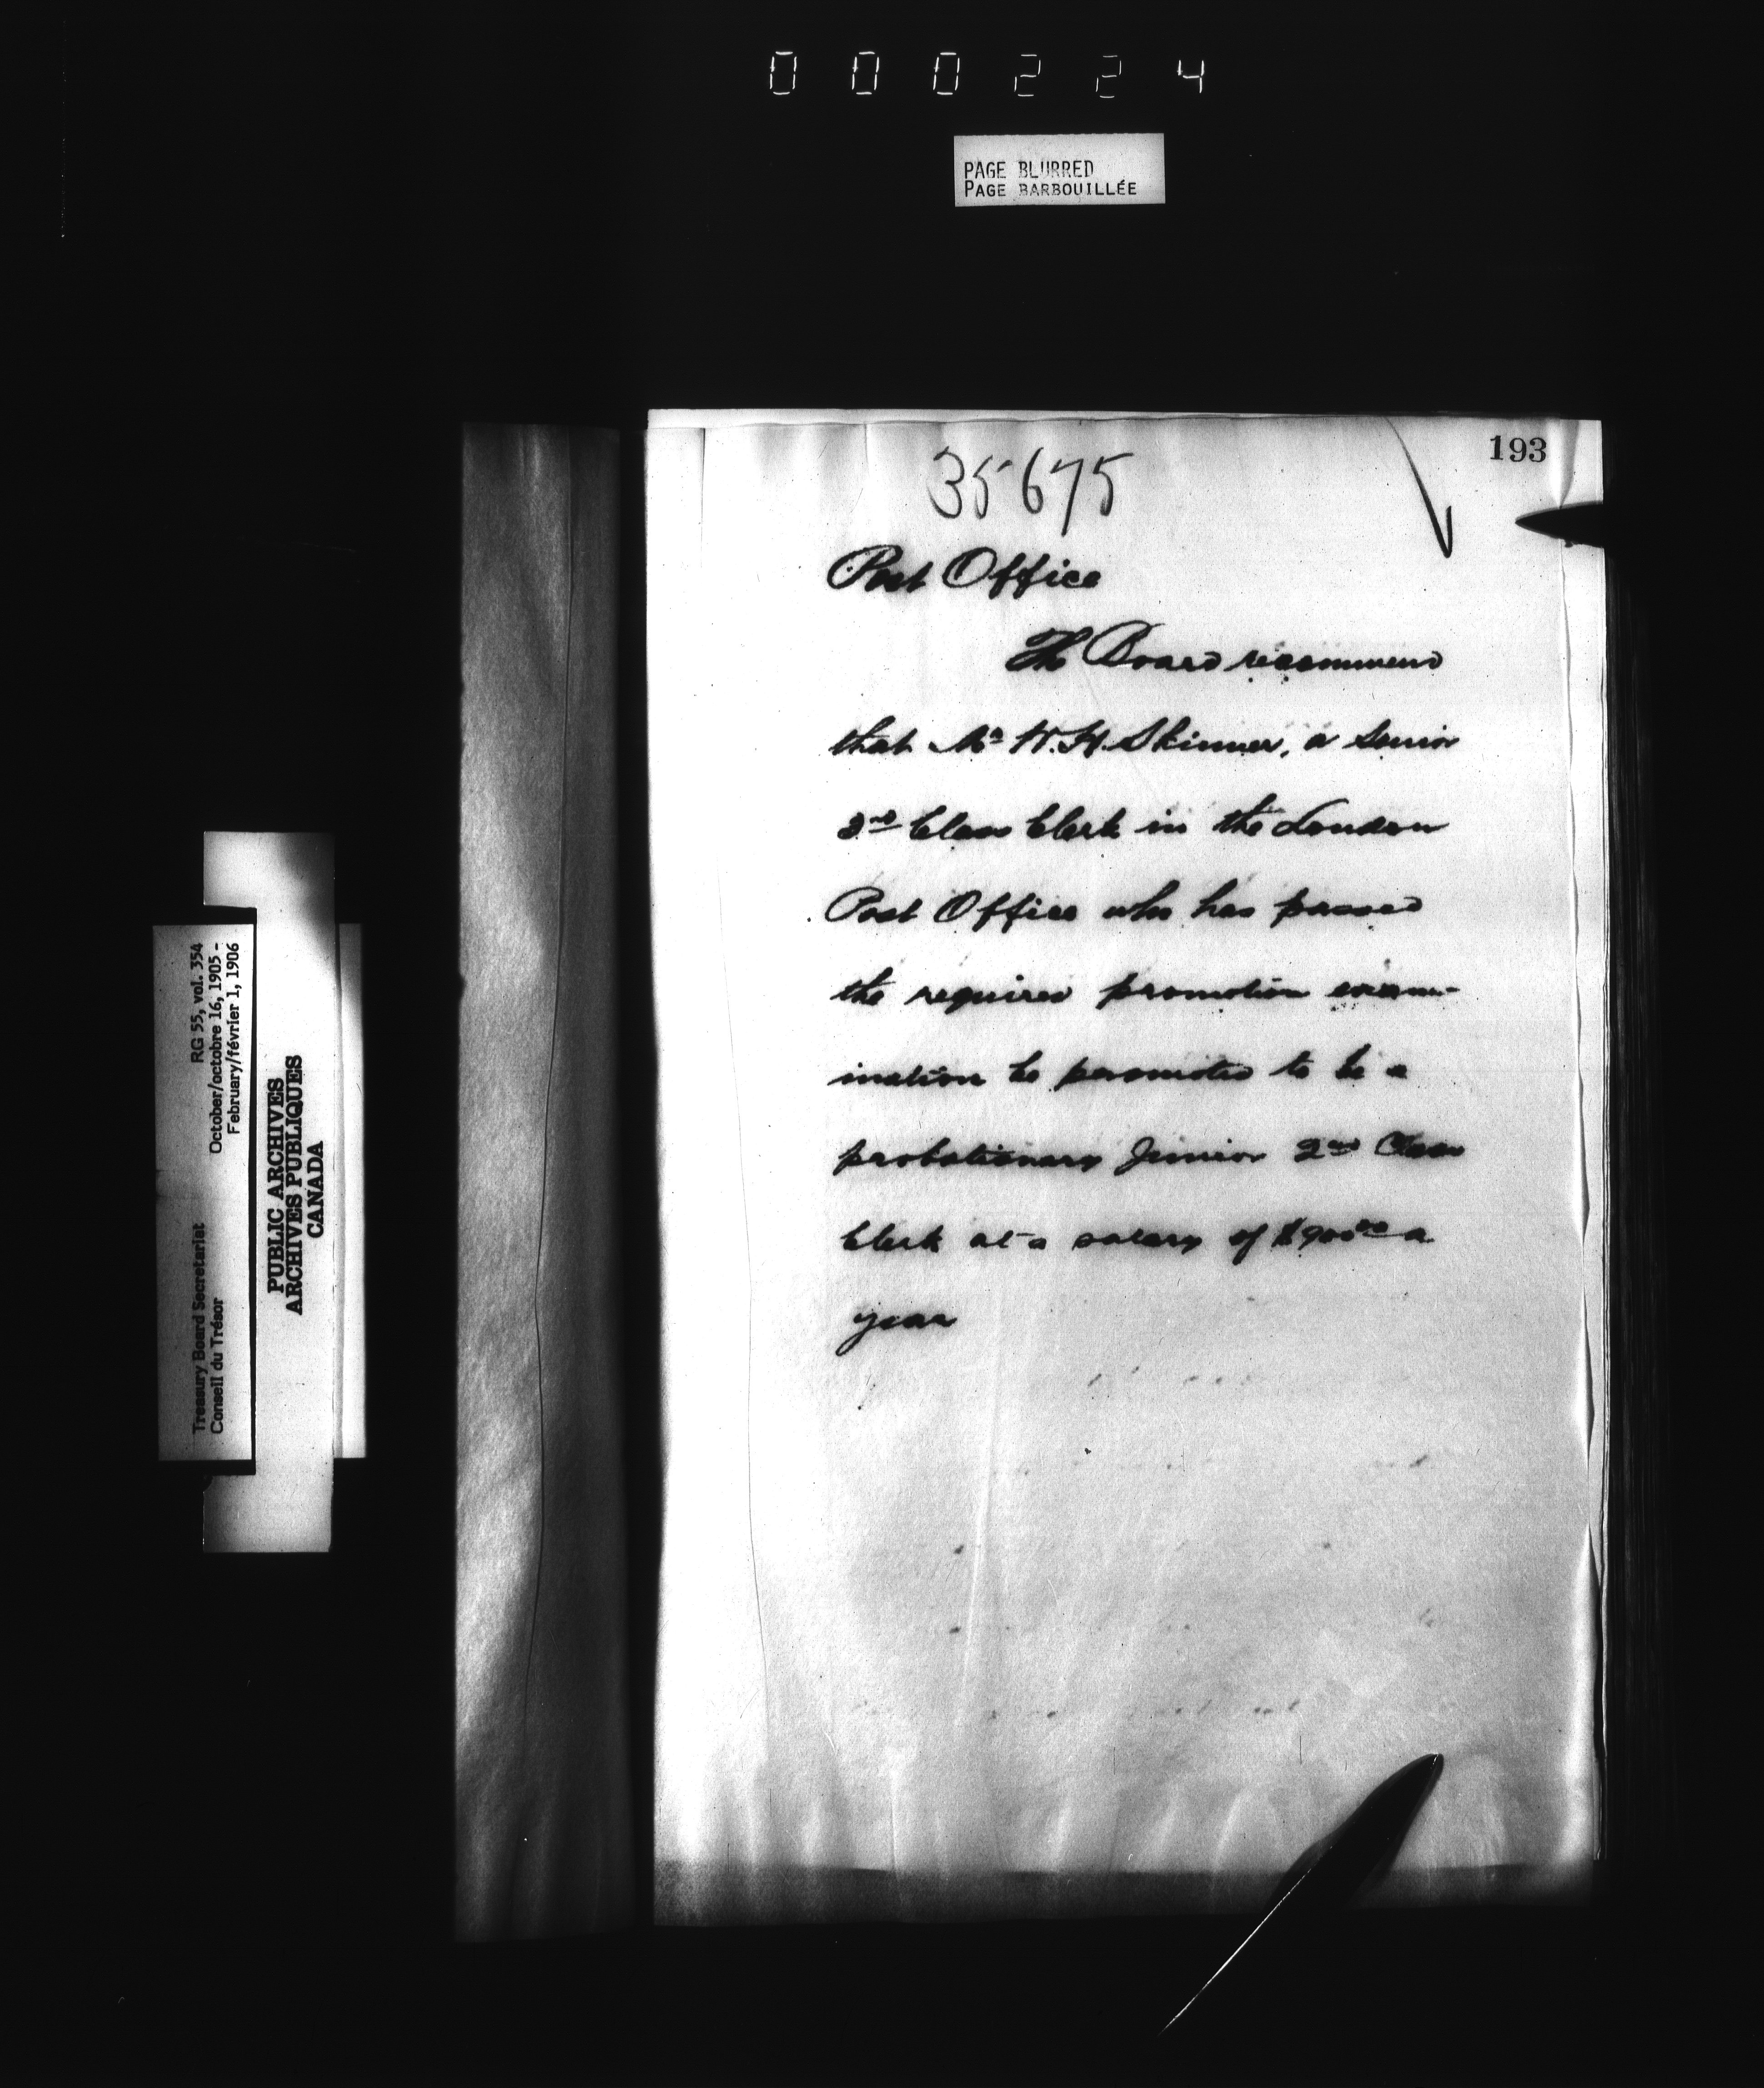 000224
PAGE BLURRED
PAGE BARBOUILLÉE
193
35675
Post Office
The Board recommend
that Mr W. H. Skinner, a Senior
3rd Class Clerk in the London
Post Office who has passed
the required promotion exam-
ination be promoted to be a
probationary Junior 2nd Class
Clerk at a salary of $900.00 a
year
Treasury Board Secretariat RG 55, vol. 354
Conseil du Trésor October/octobre 16, 1905 -
February/février 1, 1906
PUBLIC ARCHIVES
ARCHIVES PUBLIQUES
CANADA